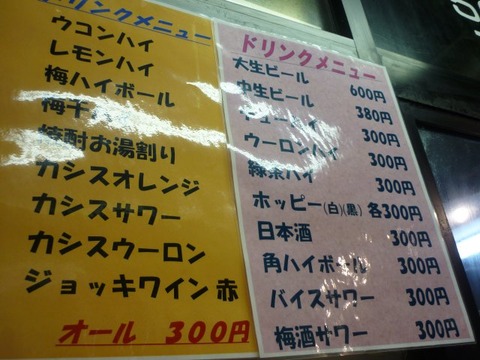 ドリンクメニュー
ウコンハイ
レモンハイ
梅ハイボール
梅干
焼酎お湯割り
カシスオレンジ
カシスサワー
カシスウーロン
ジョッキワイン 赤
オール 300円
ドリンクメニュー
大生ビール 600円
中生ビール 380円
300円
ウーロンハイ 300円
緑茶ハイ 300円
ホッピー(白)(黒) 各300円
日本酒 300円
角ハイボール 300円
バイスサワー 300円
梅酒サワー 300円